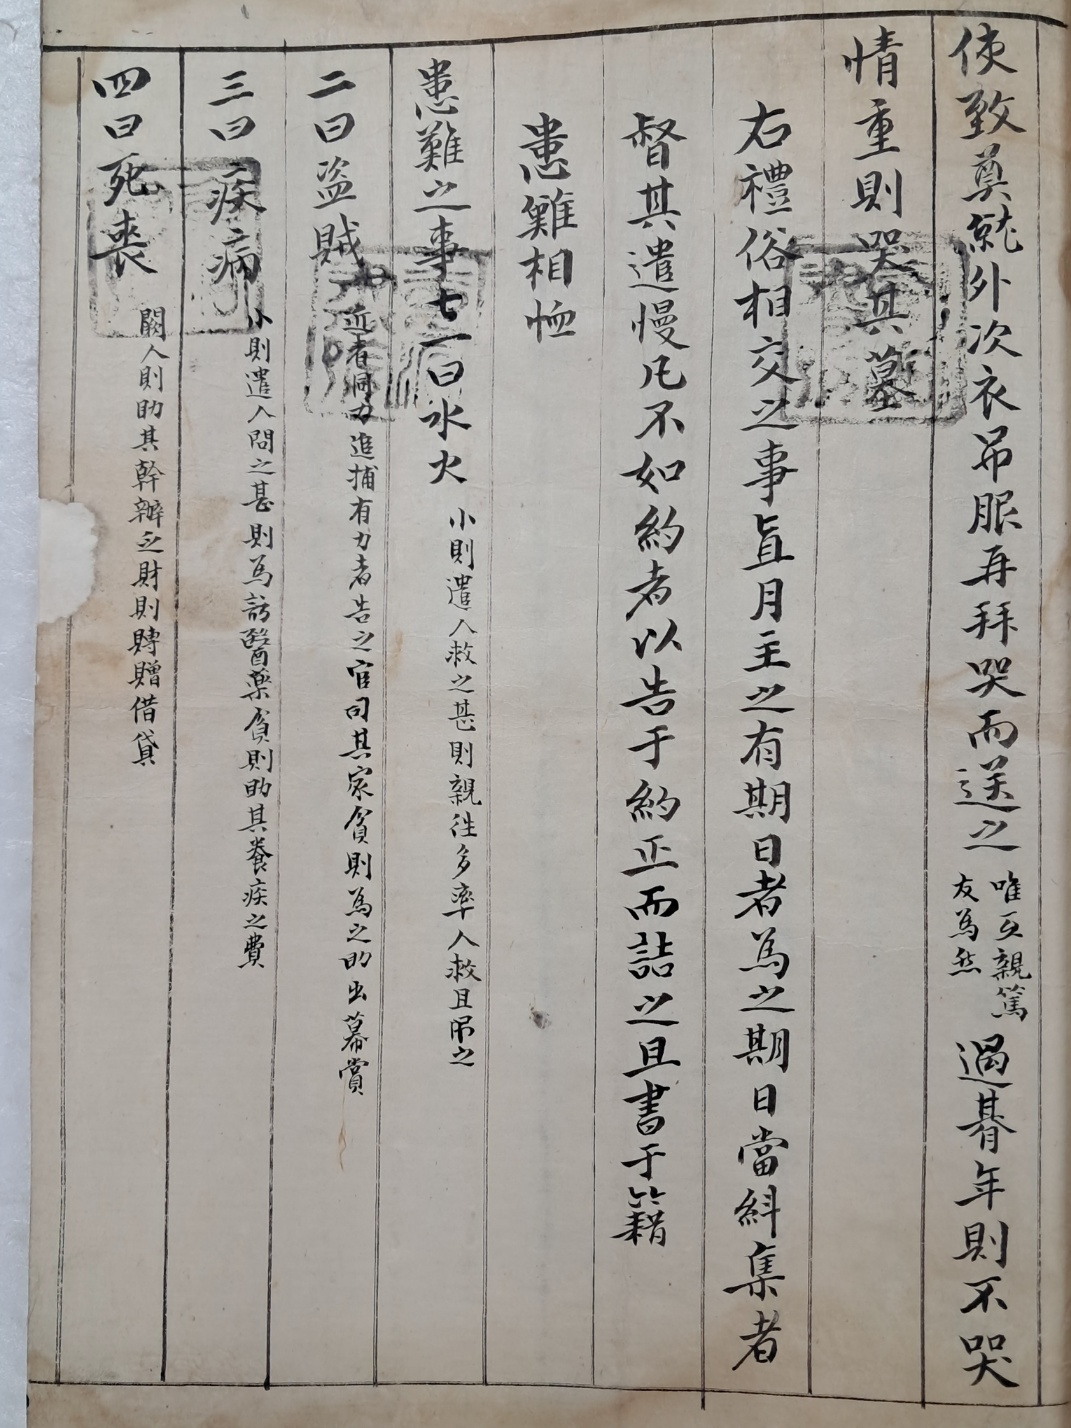 使致奠就外次衣吊服再拜哭而送之唯至親篤友為然過朞年則不哭
情重則哭其墓
右禮俗相交之事直月主之有期日者為之期日當糾集者
督其遣慢凡不如約者以告于約正而詰之且書于籍
患難相恤
患難之事七一曰水火小則遣人救之甚則親往多率人救且吊之
二曰盜賊近者同力追捕有力者告之官司其家貧則為之助出募賞
三曰疾病小則遣人問之甚則為訪醫藥貧則助其養疾之費
四曰死喪闕人則助其幹辦乏財則賻贈借貸